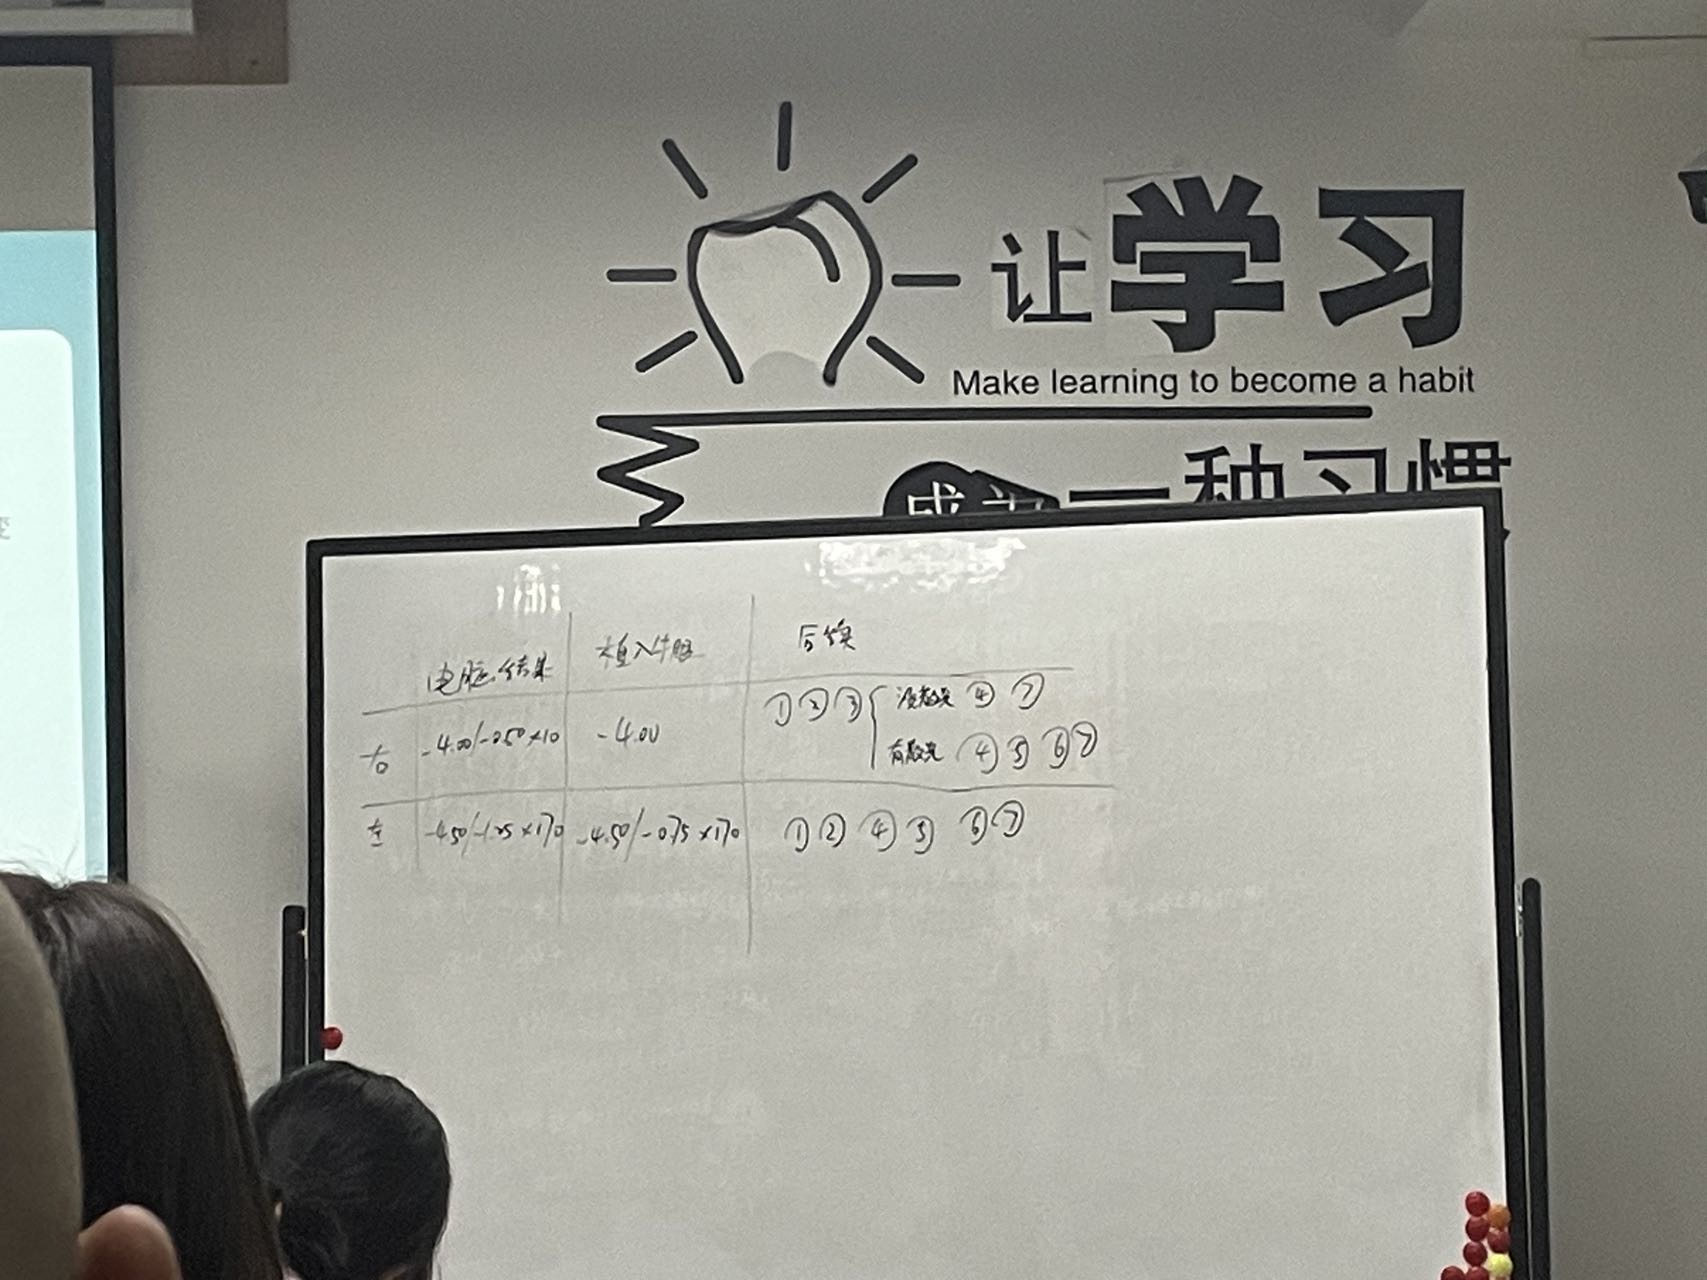 让学习
Make learning to become a habit
成为一种习惯
电脑结果 植入牛眼 后续
右 -4.00/-0.50×10 -4.00 ①②③ 没散光 ④⑦
有散光 ④⑤⑥⑦
左 -4.50/-1.25×170 -4.50/-0.75×170 ①②④⑤⑥⑦